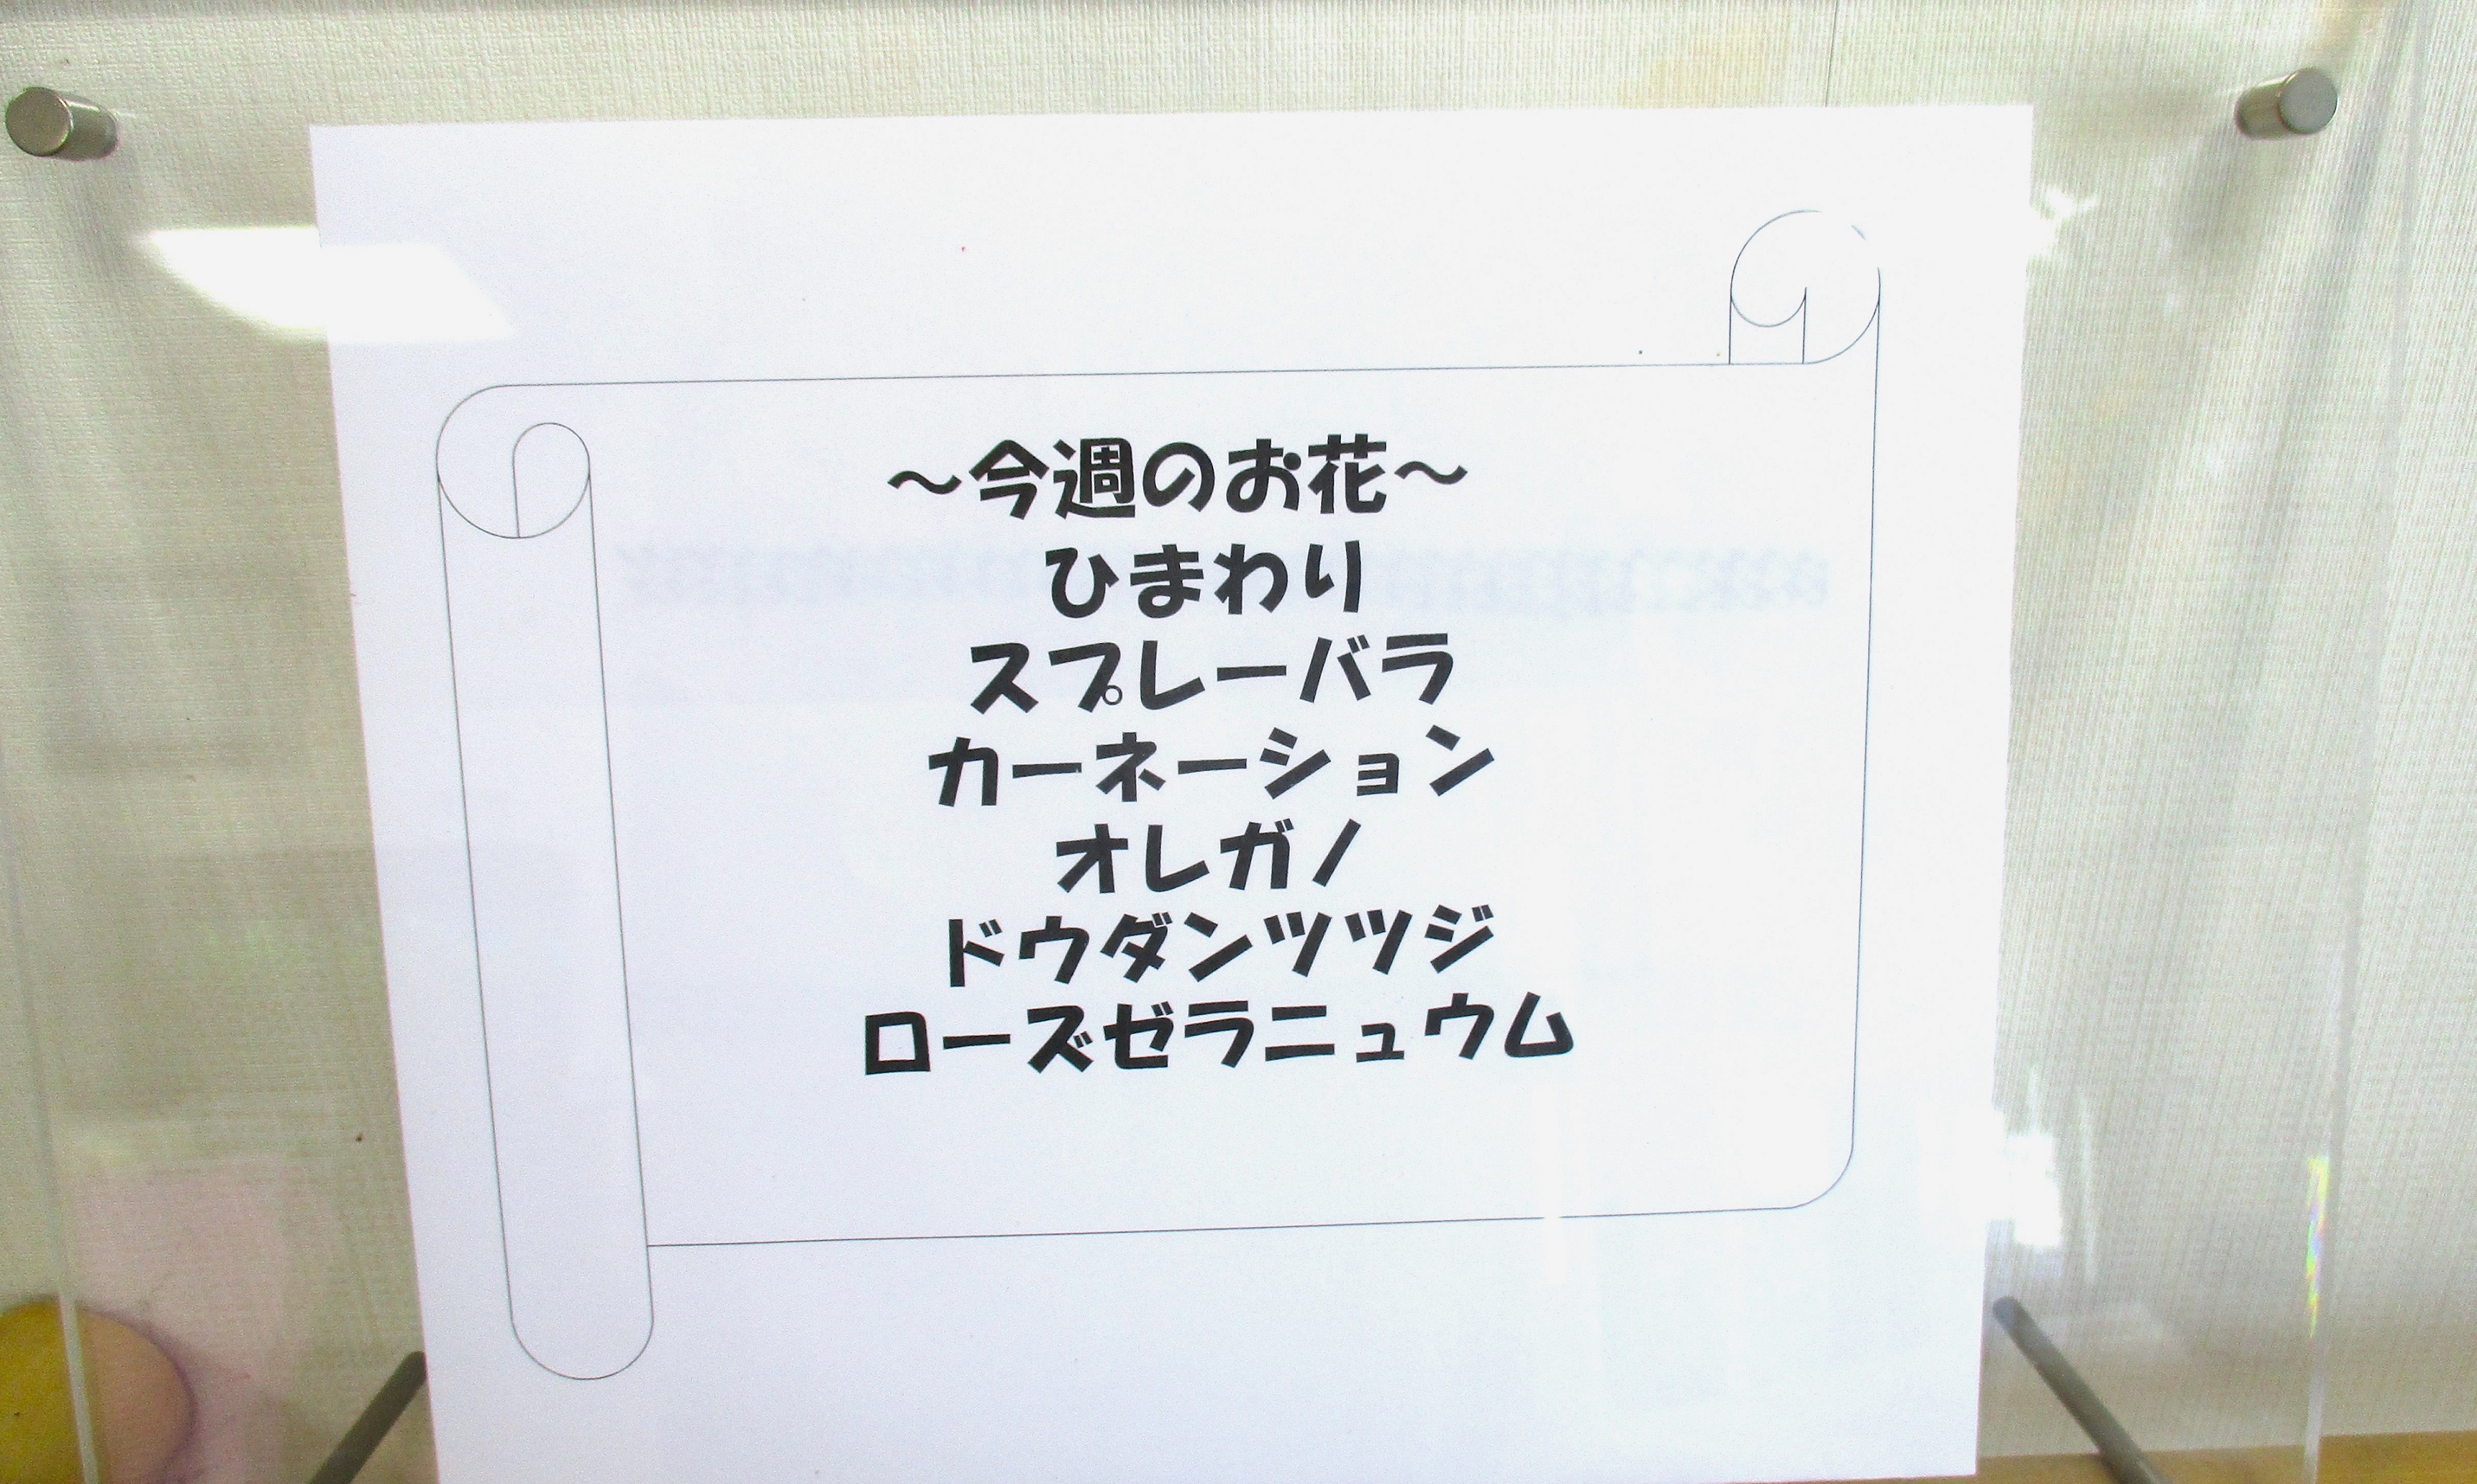 ～今週のお花～
ひまわり
スプレーバラ
カーネーション
オレガノ
ドウダンツツジ
ローズゼラニュウム